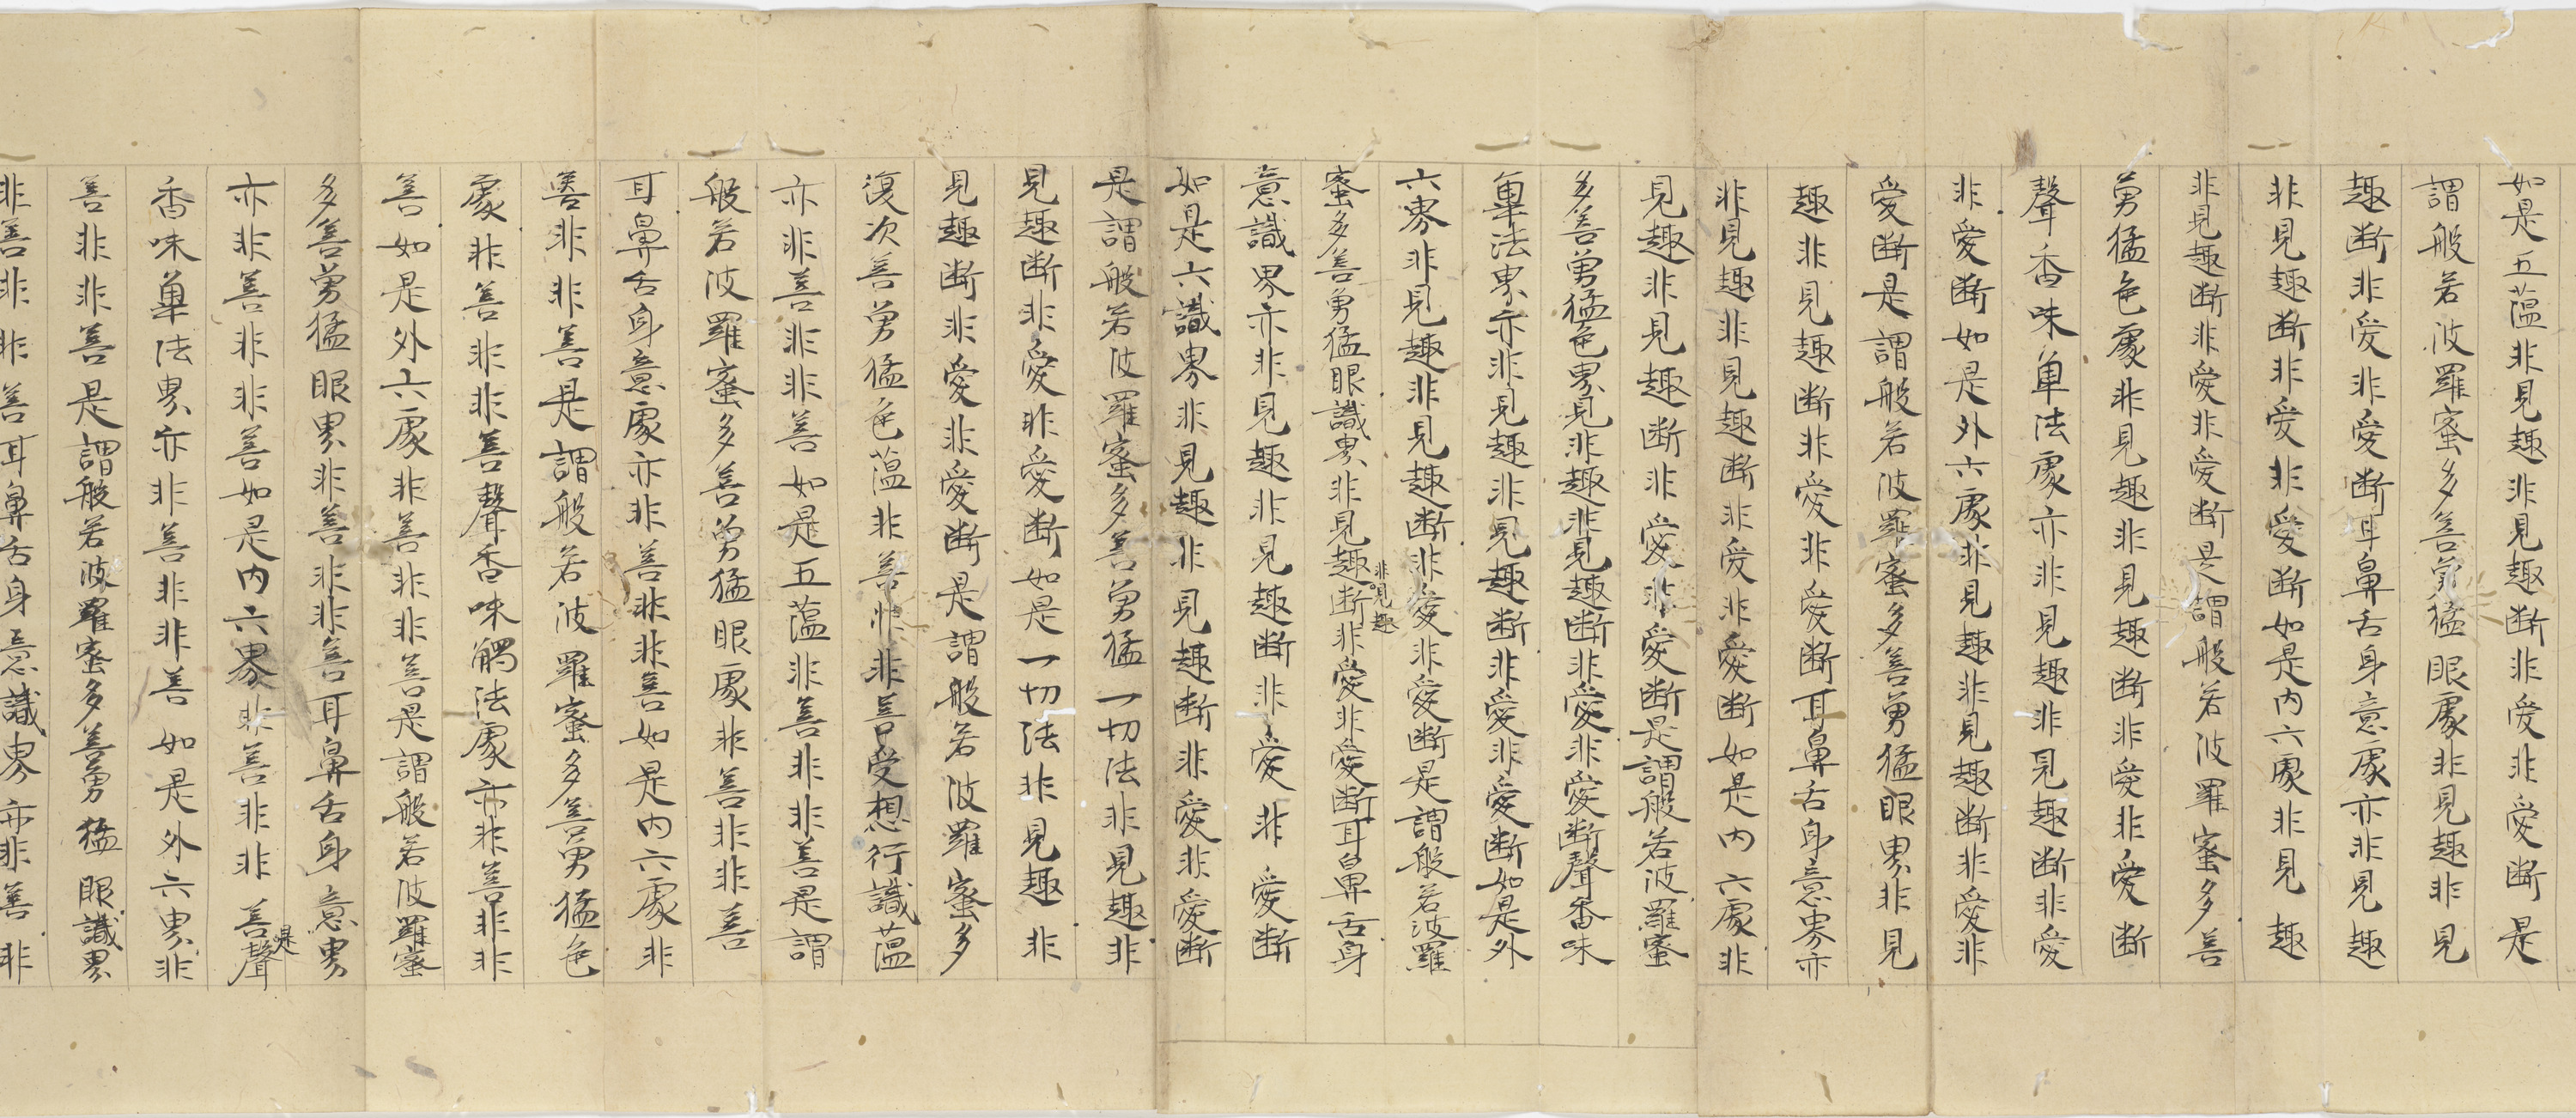 如是五蕴非見趣非見趣断非愛非愛断是
謂般若波羅蜜多善勇猛眼處非見趣非見
趣断非愛非愛断耳鼻舌身意處亦非見趣
非見趣断非愛非愛断如是内六處非見趣
非見趣断非愛非愛断是謂般若波羅蜜多善
勇猛色處非見趣非見趣断非愛非愛断
聲香味單法處亦非見趣非見趣断非愛
非愛断如是外六處非見趣非見趣断非愛非
愛断是謂般若波羅蜜多善勇猛眼界非見
趣非見趣断非愛非愛断耳鼻舌身意界亦
非見趣非見趣断非愛非愛断如是内六處非
見趣非見趣断非愛非愛断是謂般若波羅蜜
多善勇猛色界見非趣非見趣断非愛非愛断聲香味
單法界亦非見趣非見趣断非愛非愛断如是外
六界非見趣非見趣断非愛非愛断是謂般若波羅
蜜多善勇猛眼識界非見趣非見趣断非愛非愛断耳鼻舌身
意識界亦非見趣非見趣断非愛非愛断
如是六識界非見趣非見趣断非愛非愛断
是謂般若波羅蜜多善勇猛一切法非見趣非
見趣断非愛非愛断如是一切法非見趣非
見趣断非愛非愛断是謂般若波羅蜜多
復次善勇猛色蕴非善非非善受想行識蕴
亦非善非非善如是五蕴非善非非善是謂
般若波羅蜜多善勇猛眼處非善非非善
耳鼻舌身意處亦非善非非善如是内六處非
善非非善是謂般若波羅蜜多善勇猛色
處非善非非善聲香味觸法處亦非善非非
善如是外六處非善非非善是謂般若波羅蜜
多善勇猛眼界非善非非善耳鼻舌身意界
亦非善非非善如是内六界非善非非善是聲
香味單法界亦非善非非善如是外六界非
善非非善是謂般若波羅蜜多善勇猛眼識界
非善非非善耳鼻舌身意識界亦非善非